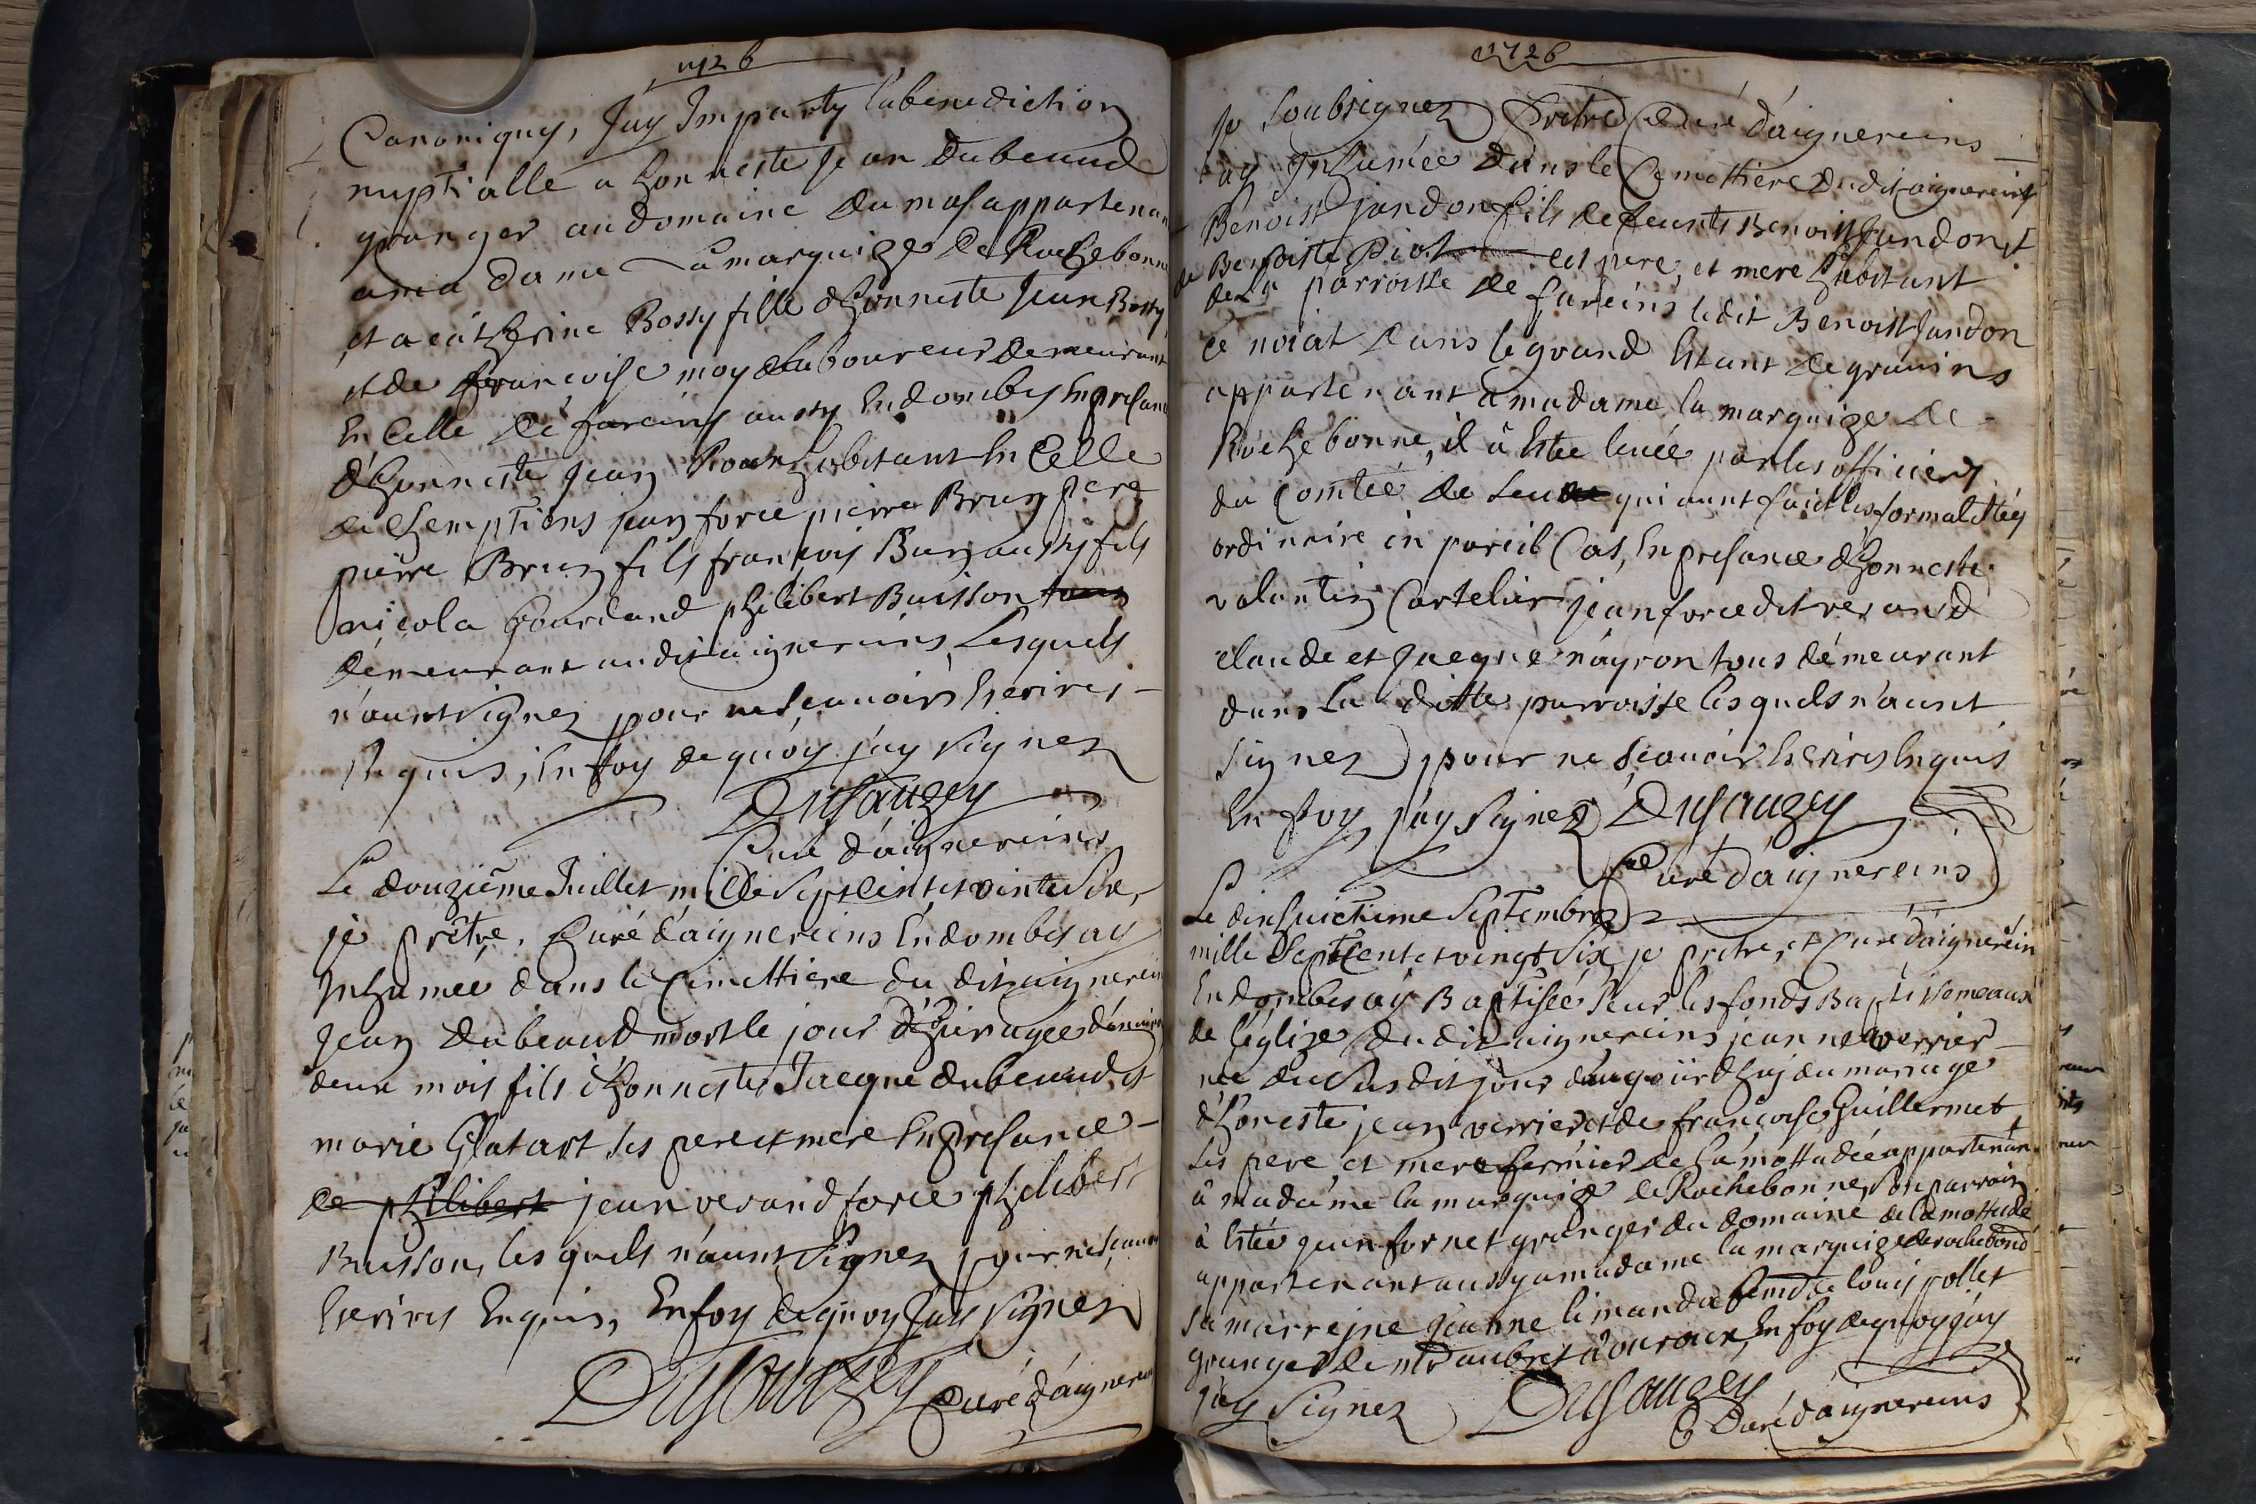 1726
Canoniques, J'ay Imparty la benediction
nuptialle a honneste Jean Dubeaud
granger au domaine du mas appartenan
a ma dame la marquize de Rochebonne
et a catherine Bossy fille d'honneste Jean Bossy
et de francoise moyne laboureur demeurant
En Celle de fareins aussy En dombes En presance
d'honneste Jean Roux habitant En Celle
de jean force pierre Brun pere
pierre Brun fils francois Brun aussy fils
nicola gourdand philibert Buisson
demeurant audit aignereins Lesquels
n'aunt signez pour ne scauoir Escrires
Enquis, En foy de quoy j'ay signez
Dusauzey
Curé d'aignereins
Le douzième Juillet mille Sept cent et vinte Six,
je prêtre, Curé d'aignereins En dombes ay
Inhumée dans le Cimettiere du dit aignerein
Jean dubeaud mort le jour d'hier agee d'environ
deux mois fils d'honneste Jacque dubeaud et
marie Glatart ses pere et mere En presance
de philibert jean verand force philibert
Buisson, les quels n'aunt Signez pour ne scauoir
Escrires Enquis, En foy de quoy J'ay signez
Dusauzey Curé d'aignereins
1726
Je Soubsignez Prêtre Curé d'aignereins
ay Inhumée dans le Cimettiere du dit aignereins
Benoist jandon fils de feunts Benoist Jandon et
de Benoiste Piot ses pere, et mere habitant
de la parroisse de fareins ledit Benoist Jandon
ce noiat dans le grand Estant de grauins
appartenant a madame la marquize de
Rochebonne, il â Estee leuée par les officiers
du Comtée de qui aunt faict les formalitées
ordinaire en pareil Cas, En presance d'honneste
valantin Cartelier jean force dit verand
claude et Jacque nayron tous démeurant
dans La ditte parroisse lesquels n'aunt
signez pour ne scauoir Escrires Enquis
En foy j'ay signez Dusauzey
Curé d'aignereins
Le dixhuictieme Septembre
mille Sept Cent et vingt Six je prêtre, et Curé d'aignerein
En dombes ay Baptisée Seur les fonds Baptismeaux
de l'églize du dit aignereins jeanne verrier
née du Susdit jour d'augourd'huj du mariage
d'honeste jean verrier et de françoise Guillermet
ses pere et mere fermier de la mottadée appartenan
â madame la marquize de Rochebonne, son parroin
â Estée jean fornet granger du domaine de la mottadé
appartenant aussy a madame la marquize de rochebone
sa marrejne jeanne limanda femme de louis pollet
granger de mr aubret â ouroux, En foy de quoy j'ay
j'ay signez Dusauzey
Curé d'aignereins